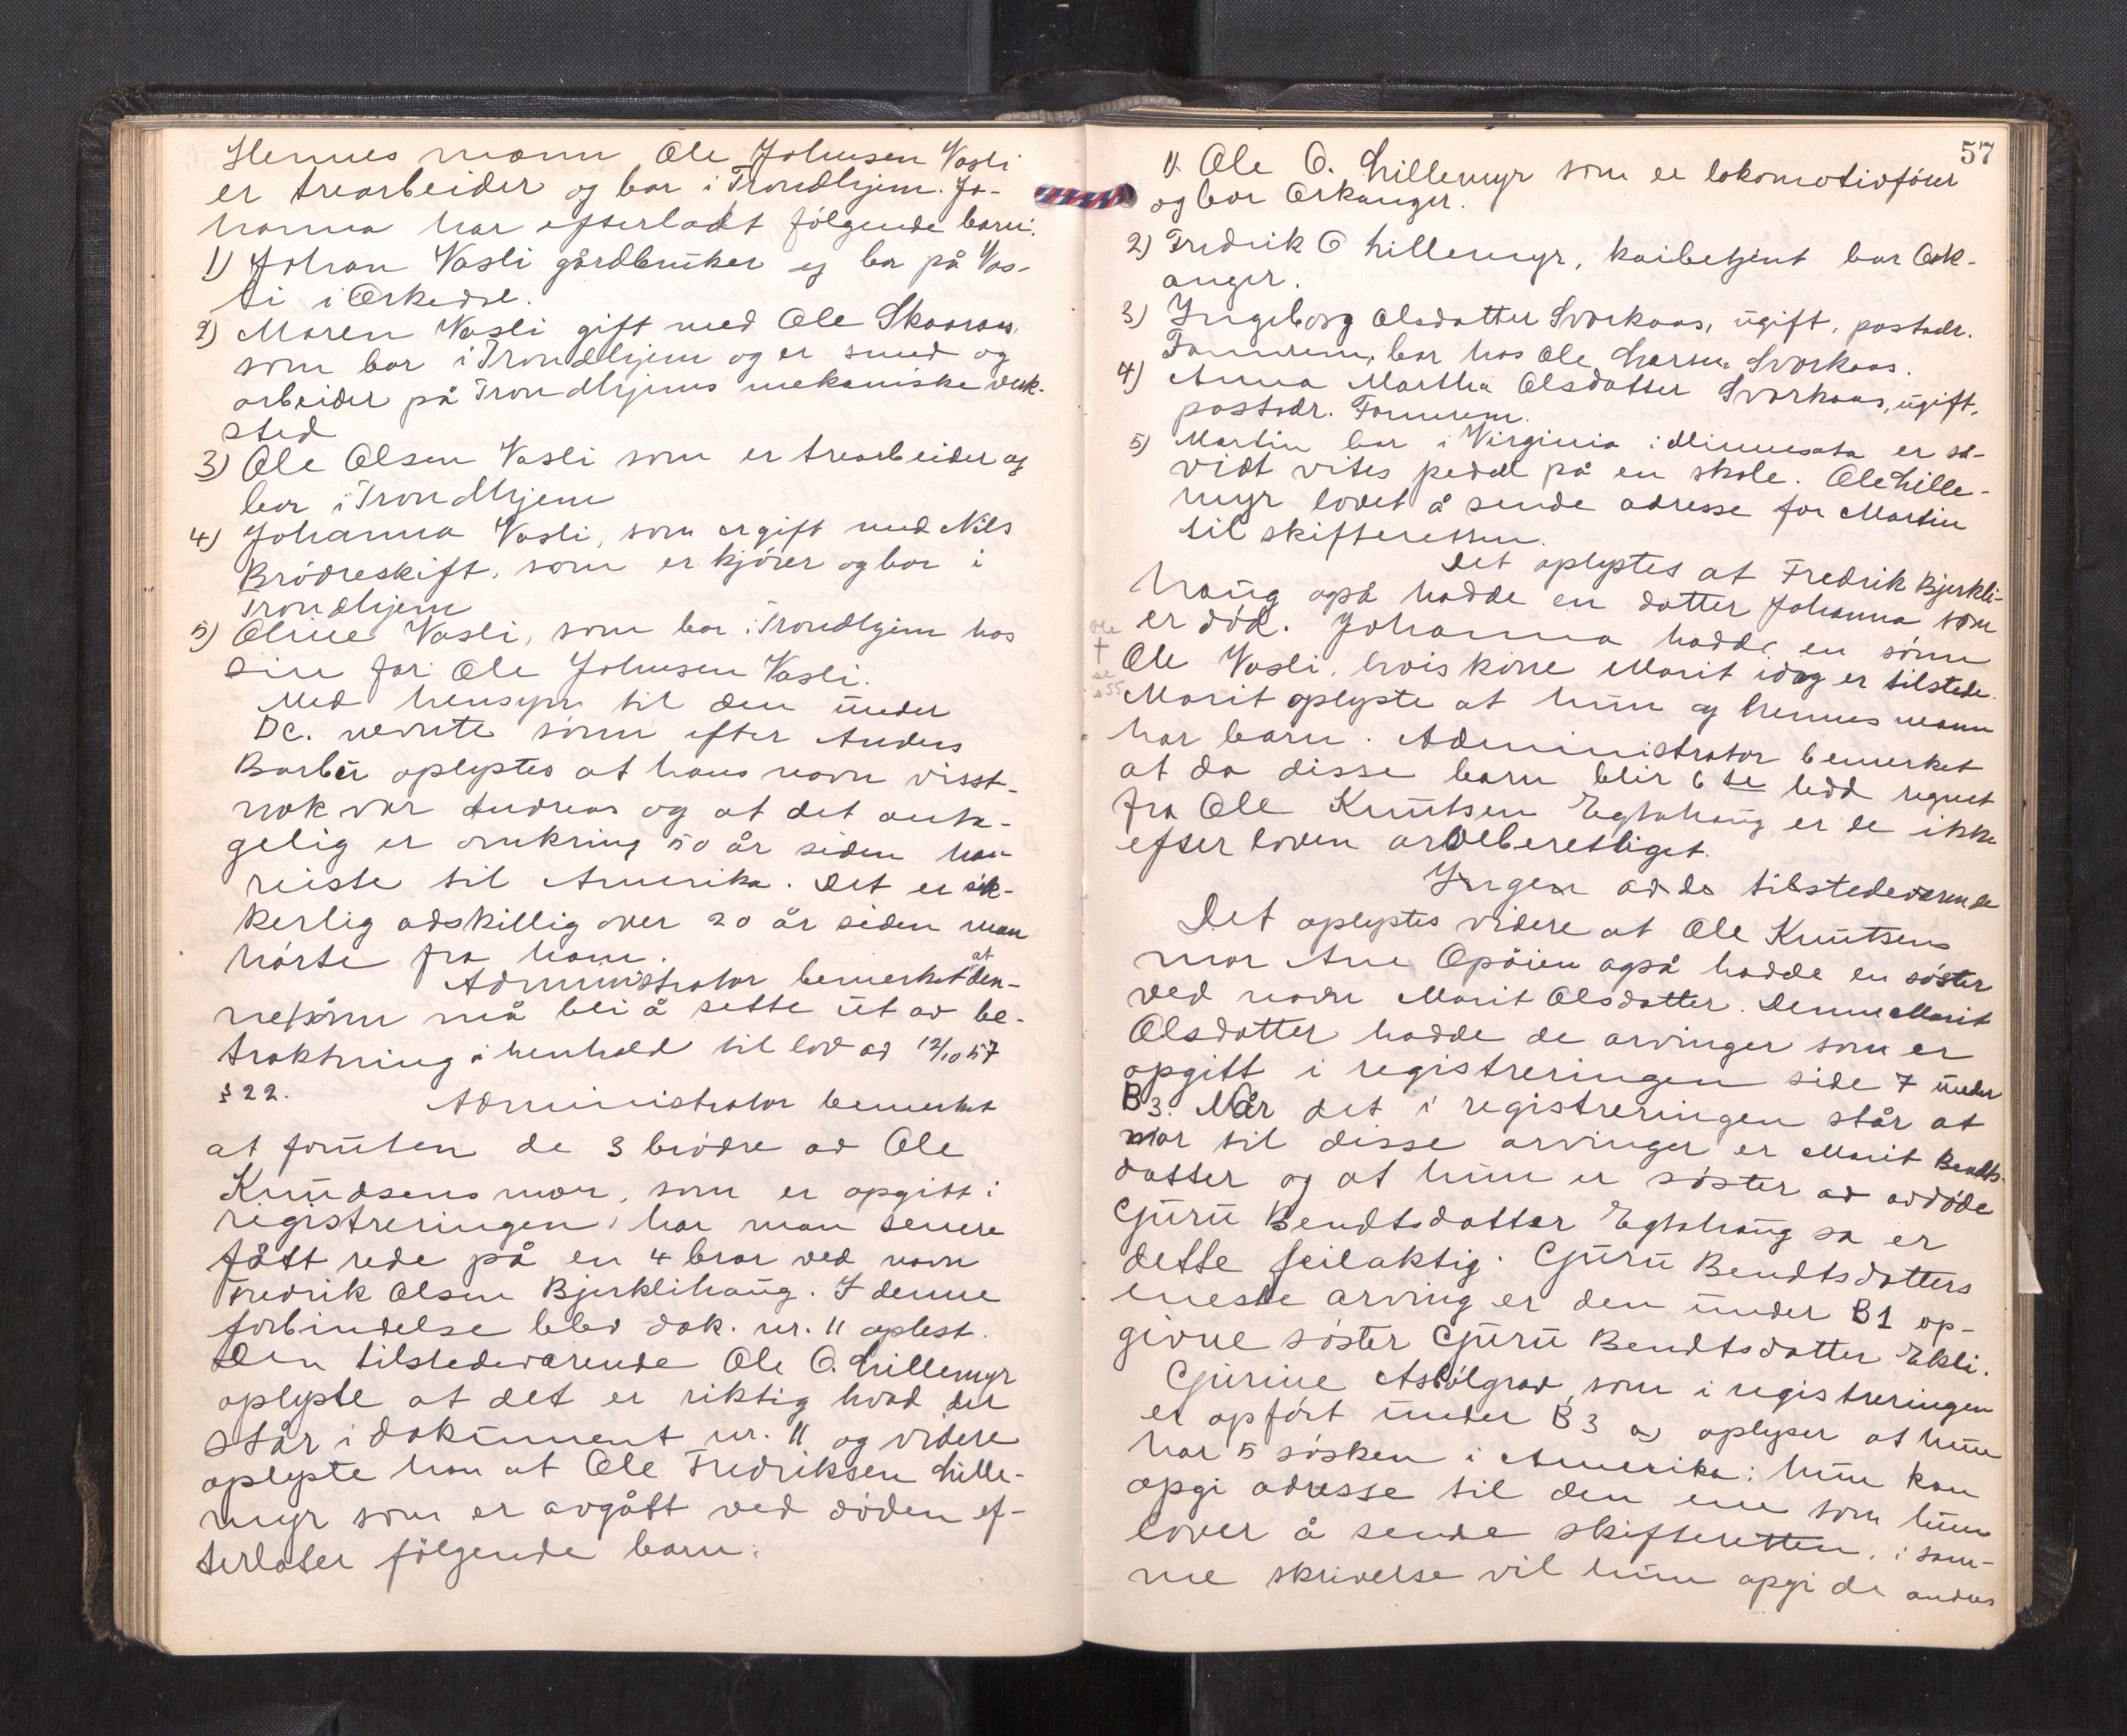 Hennes mann Ole Johnsen Vasli
er trearbeider og bor i Trondhjem. Jo-
hanna har efterladt følgende barn:
1) Johan Vasli gårdbruker og bor på Vas-
li i Orkedal.
2) Maren Vasli gift med Ole Skaaraas
som bor i Trondhjem og er smed og
arbeider på Trondhjems mekaniske verk-
sted
3) Ole Olsen Vasli som er trearbeider og
bor i Trondhjem
4) Johanna Vasli, som er gift med Nils
Brödreskift, som er kjörer og bor i
Trondhjem
5) Oline Vasli, som bor i Trondhjem hos
sin far Ole Johnsen Vasli.
Med hensyn til den under
Dc. nevnte sönn efter Anders
Barbu oplystes at hans navn visst-
nok var Andreas og at det anta-
gelig er omkring 50 år siden han
reiste til Amerika. Det er sik-
kerlig adskillig over 20 år siden man
hörte fra ham.
Administrator bemerket at den-
ne sönn må bli å sette ut av be-
traktning i henhold til lov av 12/10 57
§ 22.
Administrator bemerket
at foruten de 3 brödre av Ole
Knudsens mor, som er opgitt i
registreringen, har man senere
fått rede på en 4 bror ved navn
Fredrik Olsen Bjerklihaug. I denne
forbindelse blev dok. nr. 11 oplest.
Den tilstedeværende Ole O. Lillemyr
oplyste at det er riktig hvad der
står i dokument nr. 11 og videre
oplyste han at Ole Fredriksen Lille-
myr som er avgått ved döden ef-
terlater fölgende barn:
57
1) Ole O. Lillemyr som er lokomotivförer
og bor Orkanger.
2) Fredrik O Lillemyr, kaibetjent bor Ork-
anger.
3) Ingeborg Olsdatter Svorkaas, ugift, postadr.
Fannrem, bor hos Ole Larsen Svorkaas.
4) Anna Martha Olsdatter Svorkaas, ugift,
postadr. Fannrem.
5) Martin bor i Virginia i Minnesota er så-
vidt vites pedel på en skole. Ole Lille-
myr lovet å sende adresse for Martin
til skifteretten.
Det oplystes at Fredrik Bjerkli-
haug også hadde en datter Johanna som
er död. Johanna hadde en sönn
Ole
†
se
s 55
Ole Vasli, hvis kone Marit idag er tilstede.
Marit oplyste at hun og hennes mann
har barn. Administrator bemerket
at da disse barn blir 6 te ledd regnet
fra Ole Knutsen Egtahaug er de ikke
efter loven arveberettiget.
Ingen av de tilstedeværende
Det oplystes videre at Ole Knutsens
mor Ane Opöien også hadde en söster
ved navn Marit Olsdatter. Denne Marit
Olsdatter hadde de arvinger som er
opgitt i registreringen side 7 under
B3. Når det i registreringen står at
mor til disse arvinger er Marit Bendts-
datter og at hun er söster av avdöde
Guru Bendtsdatter Egtahaug så er
dette feilaktig. Guru Bendtsdatters
eneste arving er den under B1 op-
givne söster Guru Bendtsdatter Ekli.
Gurine Asbölgrav, som i registreringen
er opfört under B3 a) oplyser at hun
har 5 sösken i Amerika; hun kan
opgi adresse til den ene som hun
lover å sende skifteretten, i sam-
me skrivelse vil hun opgi de andres